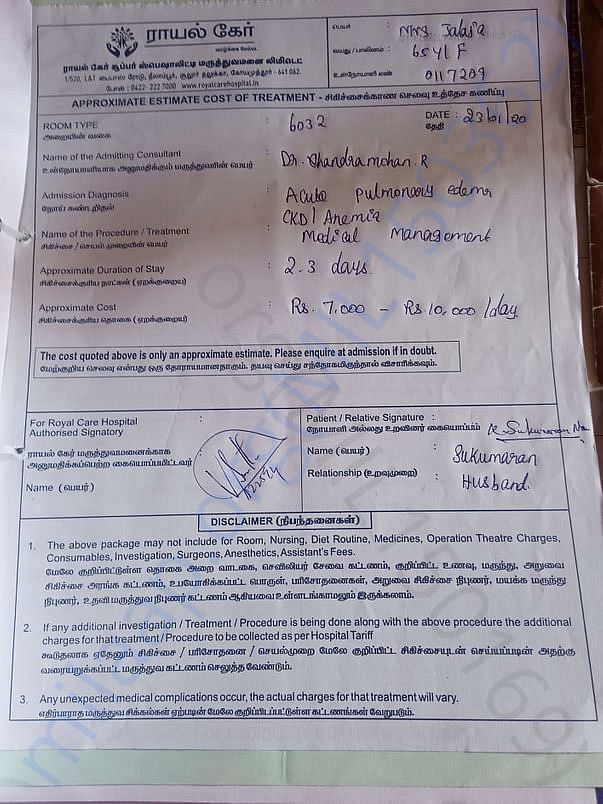 ராயல் கேர்
வாழ்க்கை மேம்பட
ராயல் கேர் சூப்பர் ஸ்பெஷாலிட்டி மருத்துவமனை லிமிடெட்
1/520, L&T பைபாஸ் ரோடு, நீலாம்பூர், சூலூர் தாலுக்கா, கோயமுத்தூர் - 641 062.
போன் : 0422- 222 7000 www.royalcarehospital.in
பெயர் : Mrs.
வயது / பாலினம் : 65Y/ F
உள்நோயாளி எண் : 0117209
APPROXIMATE ESTIMATE COST OF TREATMENT - சிகிச்சைக்கான செலவு உத்தேச கணிப்பு
ROOM TYPE : 6032 DATE : 23/01/20
அறையின் வகை தேதி
Name of the Admitting Consultant : Dr. Chandramohan. R
உள்நோயாளியாக அனுமதிக்கும் மருத்துவரின் பெயர்
Admission Diagnosis : Acute pulmonary edema
நோய் கண்டறிதல் CKD / Anemia
Name of the Procedure / Treatment : Medical Management
சிகிச்சை / செயல் முறையின் பெயர்
Approximate Duration of Stay : 2-3 days.
சிகிச்சைக்குரிய நாட்கள் (ஏறக்குறைய)
Approximate Cost : Rs. 7,000 - Rs 10,000 /day
சிகிச்சைக்குரிய தொகை (ஏறக்குறைய)
The cost quoted above is only an approximate estimate. Please enquire at admission if in doubt.
மேற்குறிய செலவு என்பது ஒரு தோராயமானதாகும். தயவு செய்து சந்தேகமிருந்தால் விசாரிக்கவும்.
For Royal Care Hospital :
Authorised Signatory
ராயல் கேர் மருத்துவமனைக்காக
அனுமதிக்கப்பெற்ற கையொப்பமிட்டவர்
Name (பெயர்) :
Patient / Relative Signature :
நோயாளி அல்லது உறவினர் கையொப்பம்
Name (பெயர்) : Sukumaran
Relationship (உறவுமுறை) : Husband.
DISCLAIMER (நிபந்தனைகள்)
1. The above package may not include for Room, Nursing, Diet Routine, Medicines, Operation Theatre Charges,
Consumables, Investigation, Surgeons, Anesthetics, Assistant's Fees.
மேலே குறிப்பிட்டுள்ள தொகை அறை வாடகை, செவிலியர் சேவை கட்டணம், குறிப்பிட்ட உணவு, மருந்து, அறுவை
சிகிச்சை அரங்க கட்டணம், உபயோகிக்கப்பட்ட பொருள், பரிசோதனைகள், அறுவை சிகிச்சை நிபுணர், மயக்க மருந்து
நிபுணர், உதவி மருத்துவ நிபுணர் கட்டணம் ஆகியவை உள்ளடங்காமலும் இருக்கலாம்.
2. If any additional investigation / Treatment / Procedure is being done along with the above procedure the additional
charges for that treatment / Procedure to be collected as per Hospital Tariff
கூடுதலாக ஏதேனும் சிகிச்சை / பரிசோதனை / செயல்முறை மேலே குறிப்பிட்ட சிகிச்சையுடன் செய்யப்படின் அதற்கு
வரையறுக்கப்பட்ட மருத்துவ கட்டணம் செலுத்த வேண்டும்.
3. Any unexpected medical complications occur, the actual charges for that treatment will vary.
எதிர்பாராத மருத்துவ சிக்கல்கள் ஏற்படின் மேலே குறிப்பிடப்பட்டுள்ள கட்டணங்கள் வேறுபடும்.